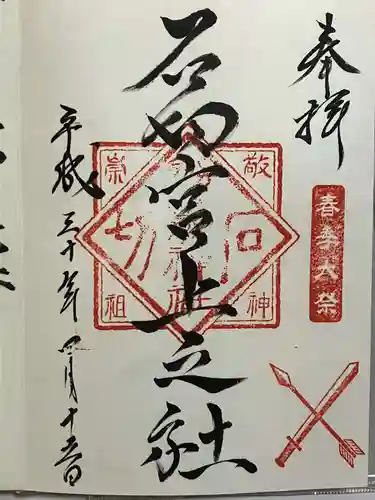 奉拝
春季大祭
石切宮上之社
敬神
崇祖
石切
平成三十年四月十六日